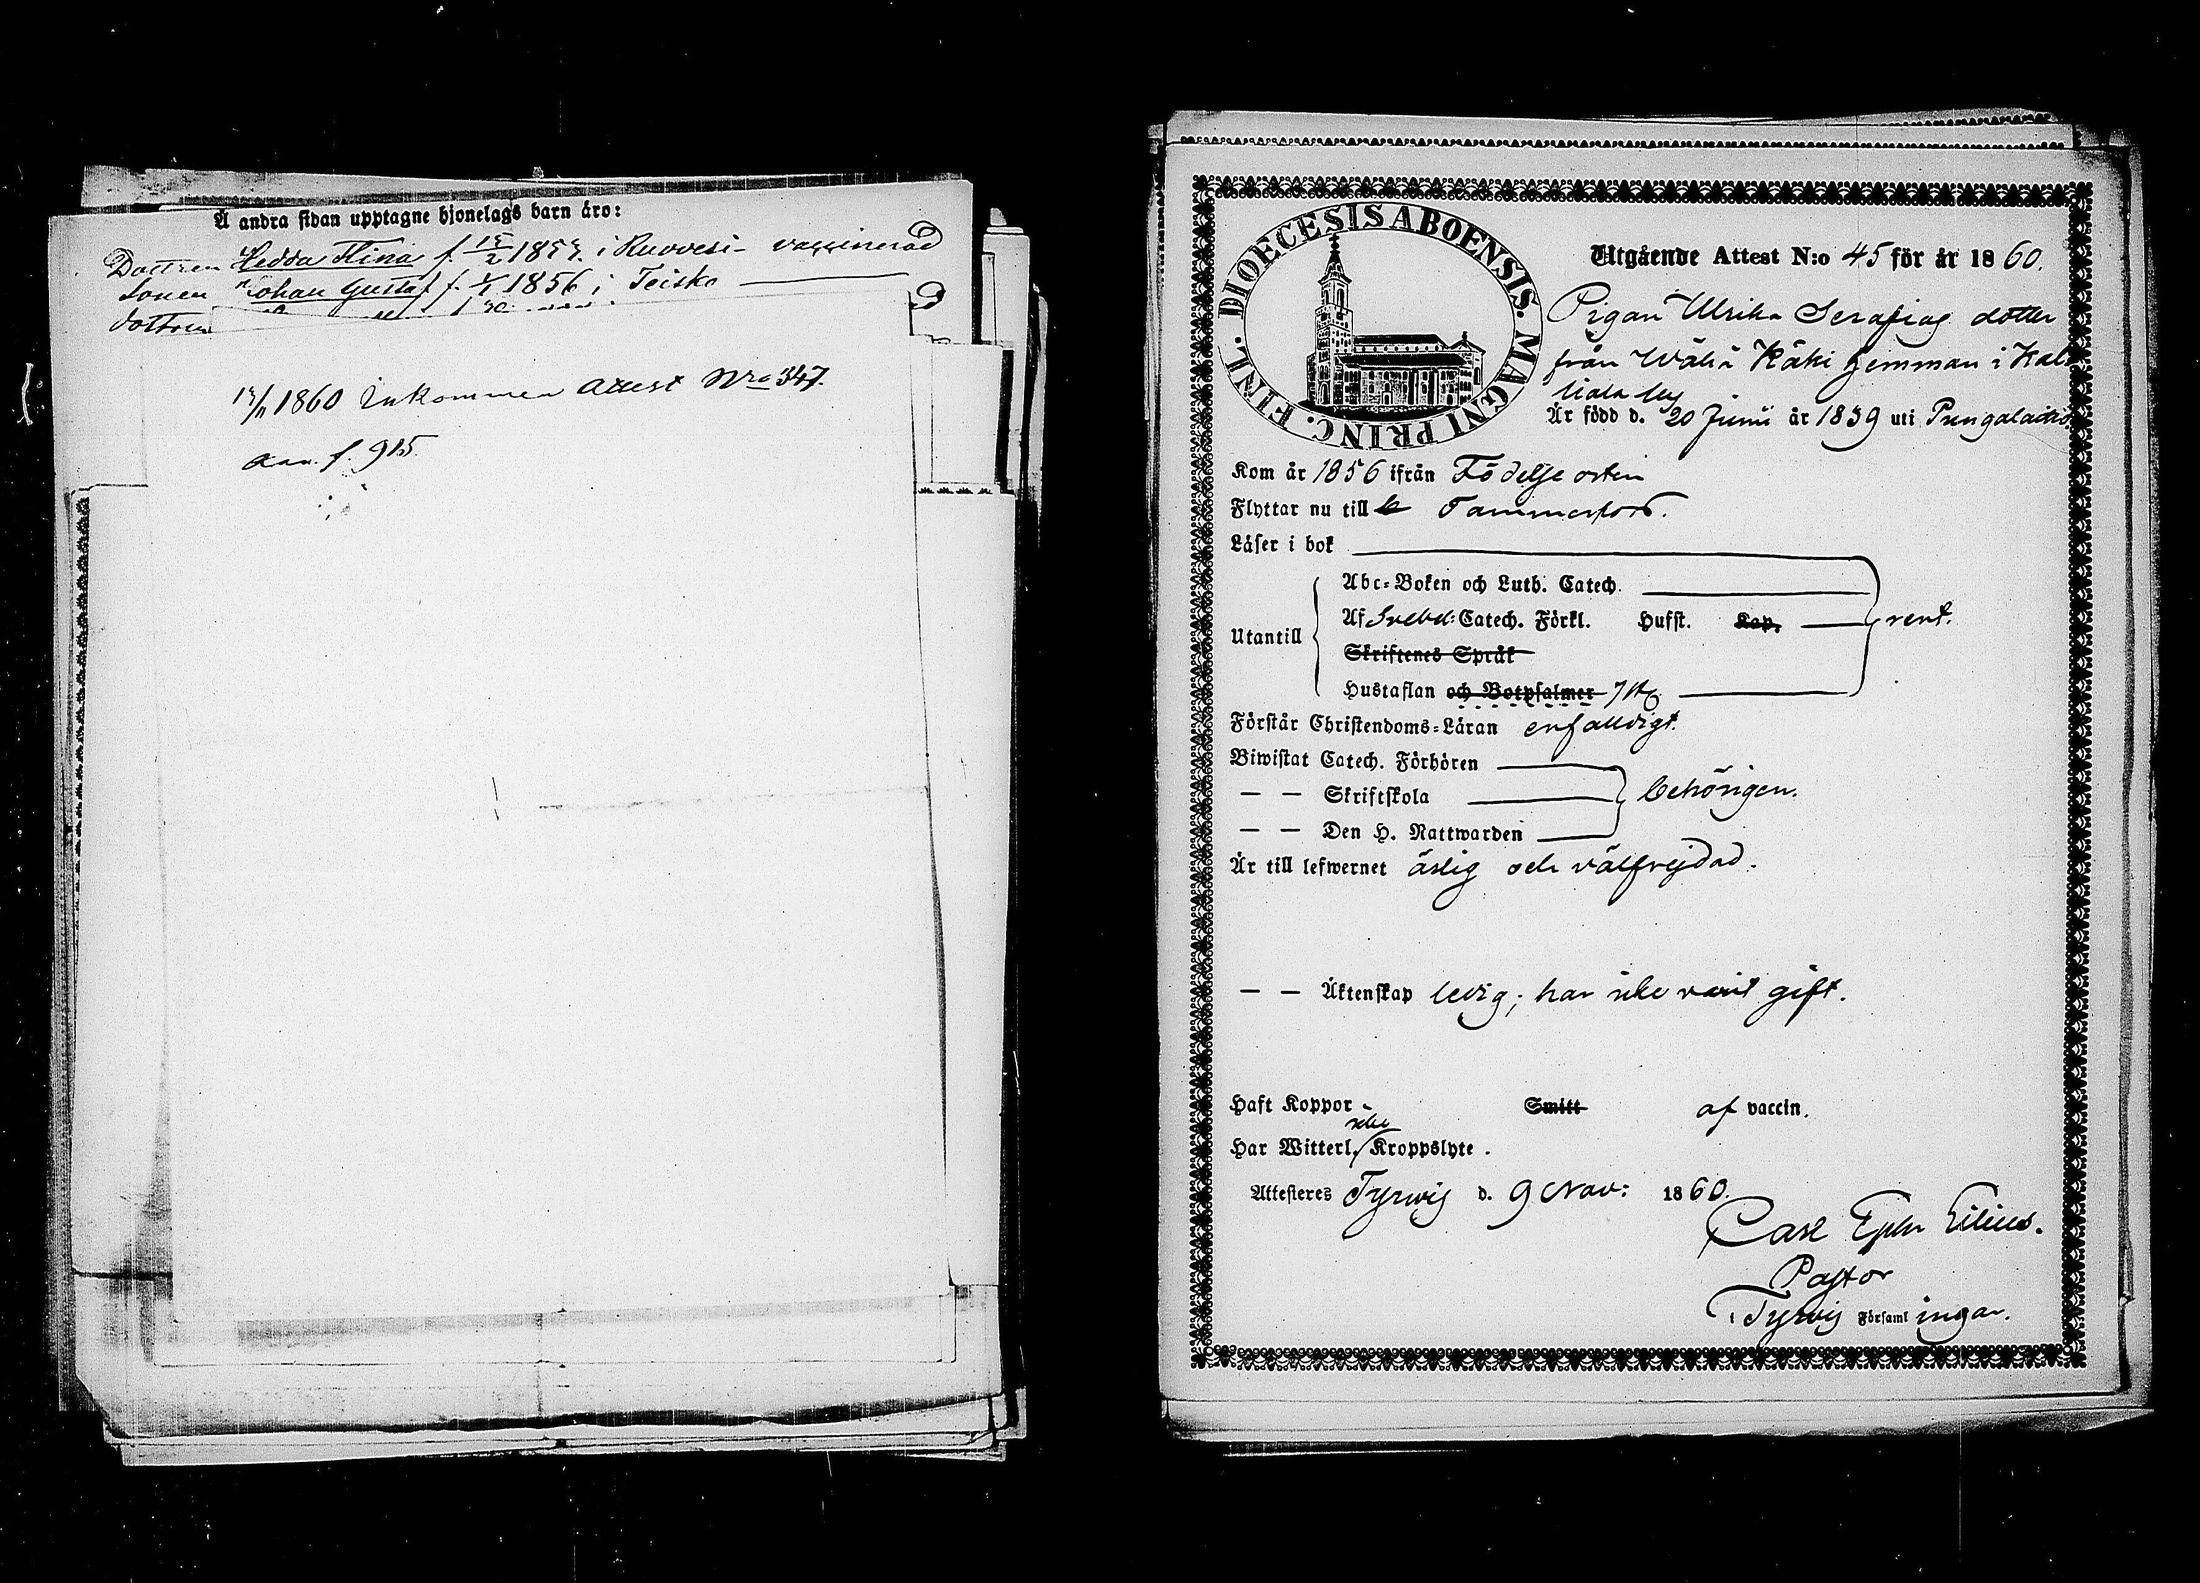 Å andra sidan upptagne hjonelags barn äro:
Dottren Hedda Stina f. 15/2 185 i Ruovesi - vaccinerad
Sonen Johan Gustaf f. 1/1 1856 i Teisko
dottren
1860 Inkommen attest Nro 347.
f. 915
DIOECESIS ABOENSIS. MAGNI PRINC. FINL.
Utgående Attest N:o 45 för år 1860.
Pigan Ulrika Serafias dotter
från Wähä Käki hemman i Kal
liala by
År född d. 20 Junii år 1839 uti Pungalaitio
Kom år 1856 ifrån Födelse orten
Flyttar nu till Tammerfors.
Läser i bok
Abc-Boken och Luth. Catech.
Utantill Af Svebel: Catech. Förkl. Hufst. Kap. rent.
Skriftenes Språk
Hustaflan och Botpsalmer 7 st
Förstår Christendoms-Läran enfaldigt.
Biwistat Catech. Förhören
— — Skriftskola behörigen.
— — Den H. Nattwarden
Är till lefwernet ärlig och välfrejdad.
— — Äktenskap ledig; har icke varit gift.
Haft Koppor - Smitt af vaccin.
icke
Har Witterl. Kroppslyte.
Attesteres Tyrwis d. 9 Nov: 1860.
Carl Ephr Lilius.
Pastor
i Tyrvis Församlingar.